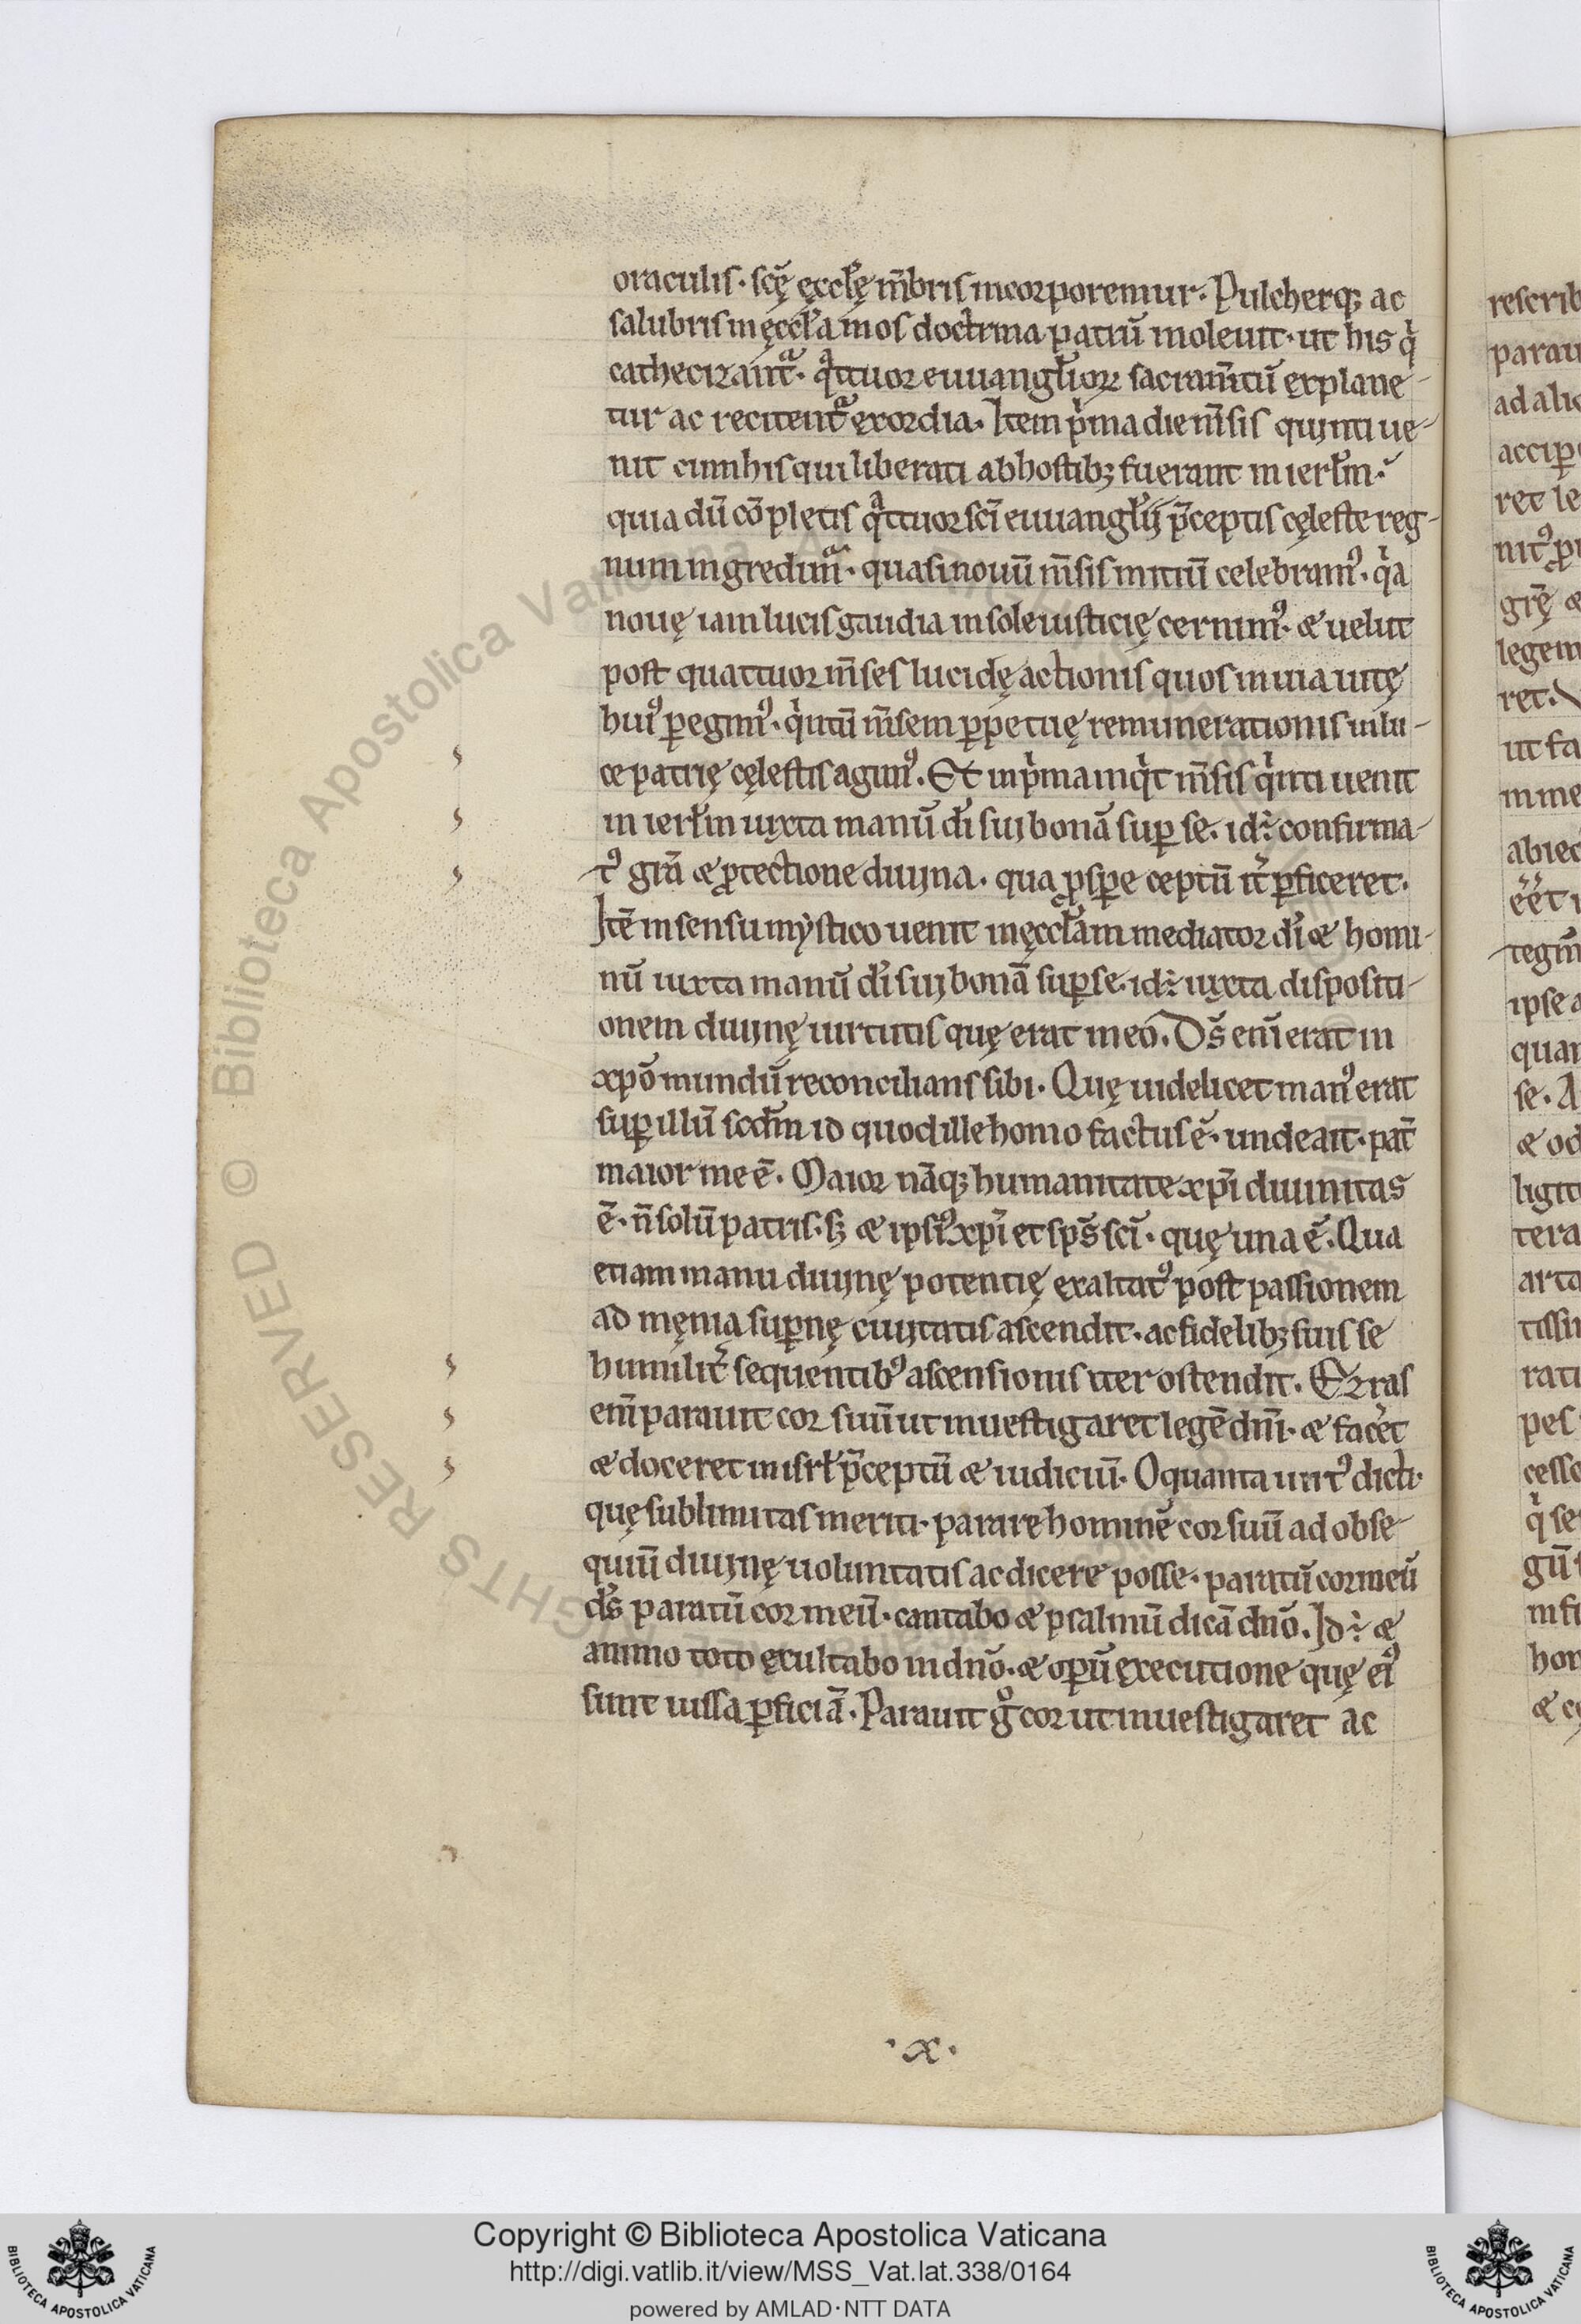 oraculis· scę̄ ęccłę m̄bris incorporemur· Pulcherq; ac
salubris in ęccła mos doctrina patrū inoleuit· ut his qͥ
cathecizantᷓ· qᷓttuor euuangłioꝝ sacram̄tū explane-
tur ac recitentᷓ exordia. Item pͥma die m̄sis quinti ue-
nit cum his qui liberati ab hostib; fuerant in ierłm·
quia dū cōpletis qᷓttuor sc̄i euuangłij p̄ceptis cęleste reg-
num ingredimᷓ· quasi nouū m̄sis initiū celebramꝰ· qͥa
nouę iam lucis gaudia in sole iusticię cernimꝰ· æ uelut
post quattuor m̄ses lucidę actionis quos in uia uitę
huiꝰ ꝑegimꝰ· qͥntū m̄sem ꝑpetuę remunerationis in lu-
ce patrię cęlestis agimꝰ. Et in pͥma inqͥt m̄sis qͥnti uenit
in ierłm iuxta manū dī sui bonā suꝑ se· id ÷ confirma-
tꝰ grā æ ꝓtectione diuina· qua ꝓsꝑe ceptū it̄ ꝑficeret.
Itē in sensu mẏstico uenit in ęccłam mediator dī æ homi-
nū iuxta manū dī sui bonā suꝑ se· id ÷ iuxta dispositi-
onem diuinę uirtutis quę erat in eo. Ds̄ eni̅ erat in
xp̄o mundū reconcilians sibi. Quę uidelicet manꝰ erat
suꝑ illū scdm̄ id quod ille homo factus ē· unde ait· pat̄
maior me ē. Maior nāq; humanitate xp̄i diuinitas
ē· n̄ solū patris· s; æ ipsiꝰ xp̄i et sp̄s sc̄i· quę una ē. Qua
etiam manu diuinę potentię exaltatꝰ post passionem
ad męnia suꝑnę ciuitatis ascendit· ac fidelib; suis se
humilit̄ sequentibꝰ ascensionis iter ostendit. Ezras
eni̅ parauit cor suum ut inuestigaret legē dnī· æ facēt
æ doceret in isrł p̄ceptū æ iudiciū. O quanta uirtꝰ dicti·
quę sublimitas meriti· parare hominē cor suū ad obse-
quiū diuinę uoluntatis ac dicere posse· paratū cor meū
ds̄ paratū cor meū· cantabo æ psalmū dicā dnō. Id ÷ æ
animo toto exultabo in dnō· æ oꝑū executione quę eiꝰ
sunt iussa ꝑficiā. Parauit gͦ cor ut inuestigaret ac
·x·
Copyright © Biblioteca Apostolica Vaticana
http://digi.vatlib.it/view/MSS_Vat.lat.338/0164
powered by AMLAD·NTT DATA